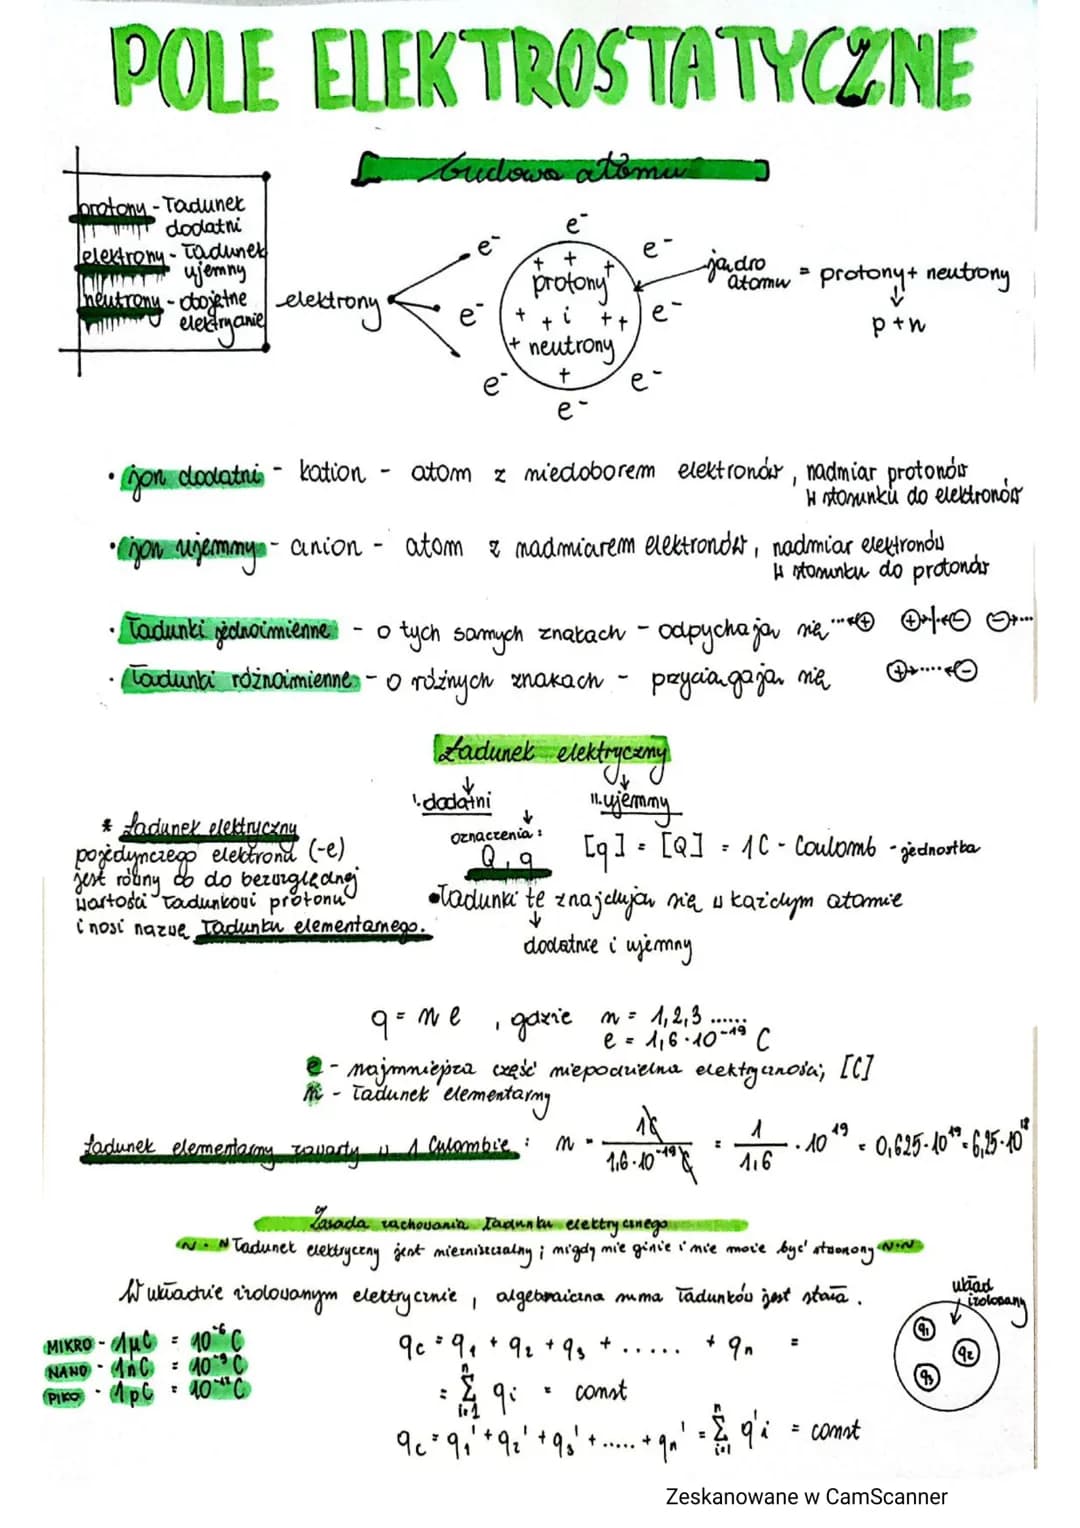 POLE ELEKTROSTATYCZNE
budowa atomu
protony - ładunek
dodatni
elektrony - ładunek
ujemny
neutrony - obojętne
elektrycznie
elektrony
e⁻
e⁻
e⁻
e⁻
e⁻
e⁻
e⁻
e⁻
+ + +
protony
+ + i + +
+ neutrony
+
jądro
atomu = protony + neutrony
p + n
• jon dodatni - kation - atom z niedoborem elektronów, nadmiar protonów
w stosunku do elektronów
• jon ujemny - anion - atom z nadmiarem elektronów, nadmiar elektronów
w stosunku do protonów
• ładunki jednoimienne - o tych samych znakach - odpychają się
• ładunki różnoimienne - o różnych znakach - przyciągają się
Ładunek elektryczny
I. dodatni
II. ujemny
oznaczenia:
Q, q
[q] = [Q] = 1C - Coulomb - jednostka
• ładunki te znajdują się w każdym atomie
dodatnie i ujemny
* Ładunek elektryczny
pojedynczego elektronu (-e)
jest równy co do bezwzględnej
wartości ładunkowi protonu
i nosi nazwę ładunku elementarnego.
q = n e , gdzie n = 1,2,3 ......
e = 1,6·10⁻¹⁹ C
e - najmniejsza część niepodzielna elektryczności; [C]
n - ładunek elementarny
Ładunek elementarny zawarty w 1 Culombie: n = 1C / 1,6·10⁻¹⁹ C = 1/1,6 · 10¹⁹ = 0,625·10¹⁹ = 6,25·10¹⁸
Zasada zachowania ładunku elektrycznego
N·N Ładunek elektryczny jest niezniszczalny; nigdy nie ginie i nie może być stworzony N·N
W układzie izolowanym elektrycznie, algebraiczna suma ładunków jest stała.
układ
izolowany
q₁
q₂
q₃
MIKRO - 1μC = 10⁻⁶ C
NANO - 1nC = 10⁻⁹ C
PIKO - 1pC = 10⁻¹² C
qc = q₁ + q₂ + q₃ + ..... + qn =
= Σ qᵢ = const
n
i=1
qc = q₁' + q₂' + q₃' + ..... + qn' = Σ q'i = const
n
i=1
Zeskanowane w CamScanner